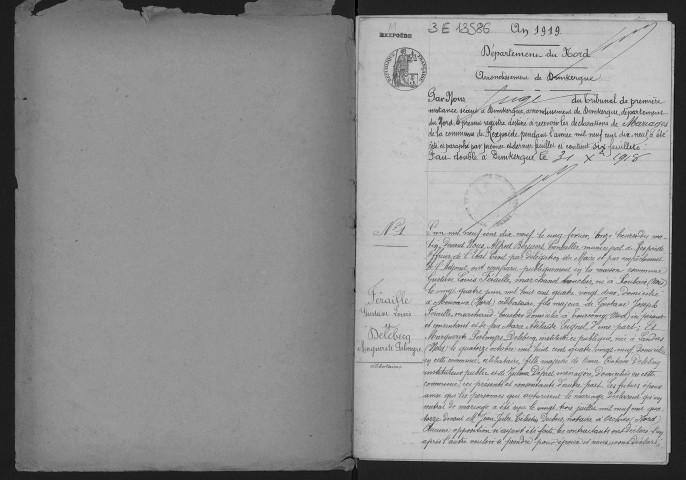 3 E 13586
An 1919.
REXPOËDE
Département du Nord
Arrondissement de Dunkerque
Par Nous Juge du Tribunal de première
instance séant à Dunkerque, arrondissement de Dunkerque, département
du Nord, le présent registre destiné à recevoir les déclarations de Mariages
de la commune de Rexpoëde pendant l'année mil neuf cent dix-neuf a été
coté et paraphé par première et dernière feuilles et contient dix feuillets.
Fait double à Dunkerque le 31 Xbre 1918
N° 1
Féraille
Gustave Louis
et
Delebecq
Marguerite
célibataires
L'an mil neuf cent dix neuf, le cinq février, onze heures du
matin, devant Nous, Alfred Conseiller municipal de Rexpoëde
officier de l'État Civil par délégation du Maire et par empêchement
de l'Adjoint, ont comparu publiquement en la maison commune
Gustave Louis Féraille, marchand boucher, né à Roubaix (Nord)
le vingt quatre juin mil huit cent quatre vingt domicilié
à Mouvaux (Nord) célibataire, fils majeur de Gustave Joseph
Féraille, marchand boucher domicilié à Tourcoing (Nord) ici présent
et consentant et de feu Marie d'une part; Et
Marguerite Delebecq, institutrice publique, née à
(Nord) le quatorze octobre mil huit cent quatre vingt domiciliée
en cette commune, célibataire, fille majeure de Delebecq
instituteur public et de ménagère, domiciliés en cette
commune, ici présents et consentants d'autre part. Les futurs époux
ainsi que les personnes qui autorisent le mariage déclarent qu'un
contrat de mariage a été reçu le vingt trois juillet mil neuf cent qua-
torze devant Me Jean Jules notaire à (Nord)
Aucune opposition n'ayant été faite les contractants ont déclaré l'un
après l'autre vouloir se prendre pour époux et nous avons déclaré